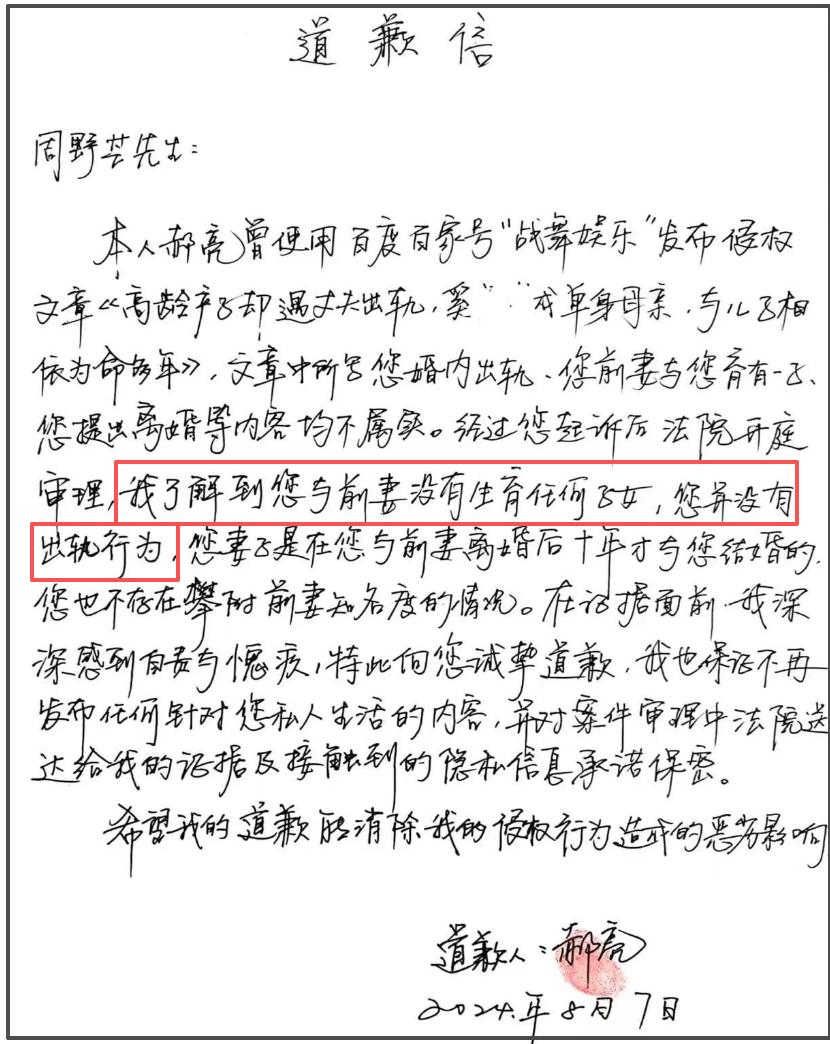 道歉信
周野芒先生：
本人郝亮曾使用百度百家号"战舞娱乐"发布侵权
文章《高龄产子却遇丈夫出轨，奚" "成单身母亲，与儿子相
依为命多年》，文章中所写您婚内出轨、您前妻与您育有一子、
您提出离婚等内容均不属实。经过您起诉后法院开庭
审理，我了解到您与前妻没有生育任何子女，您并没有
出轨行为，您妻子是在您与前妻离婚后十年才与您结婚的，
您也不存在攀附前妻知名度的情况。在证据面前，我深
深感到自责与愧疚，特此向您诚挚道歉，我也保证不再
发布任何针对您私人生活的内容，并对案件审理中法院送
达给我的证据及接触到的隐私信息承诺保密。
希望我的道歉能消除我的侵权行为造成的恶劣影响
道歉人：郝亮
2024年8月7日